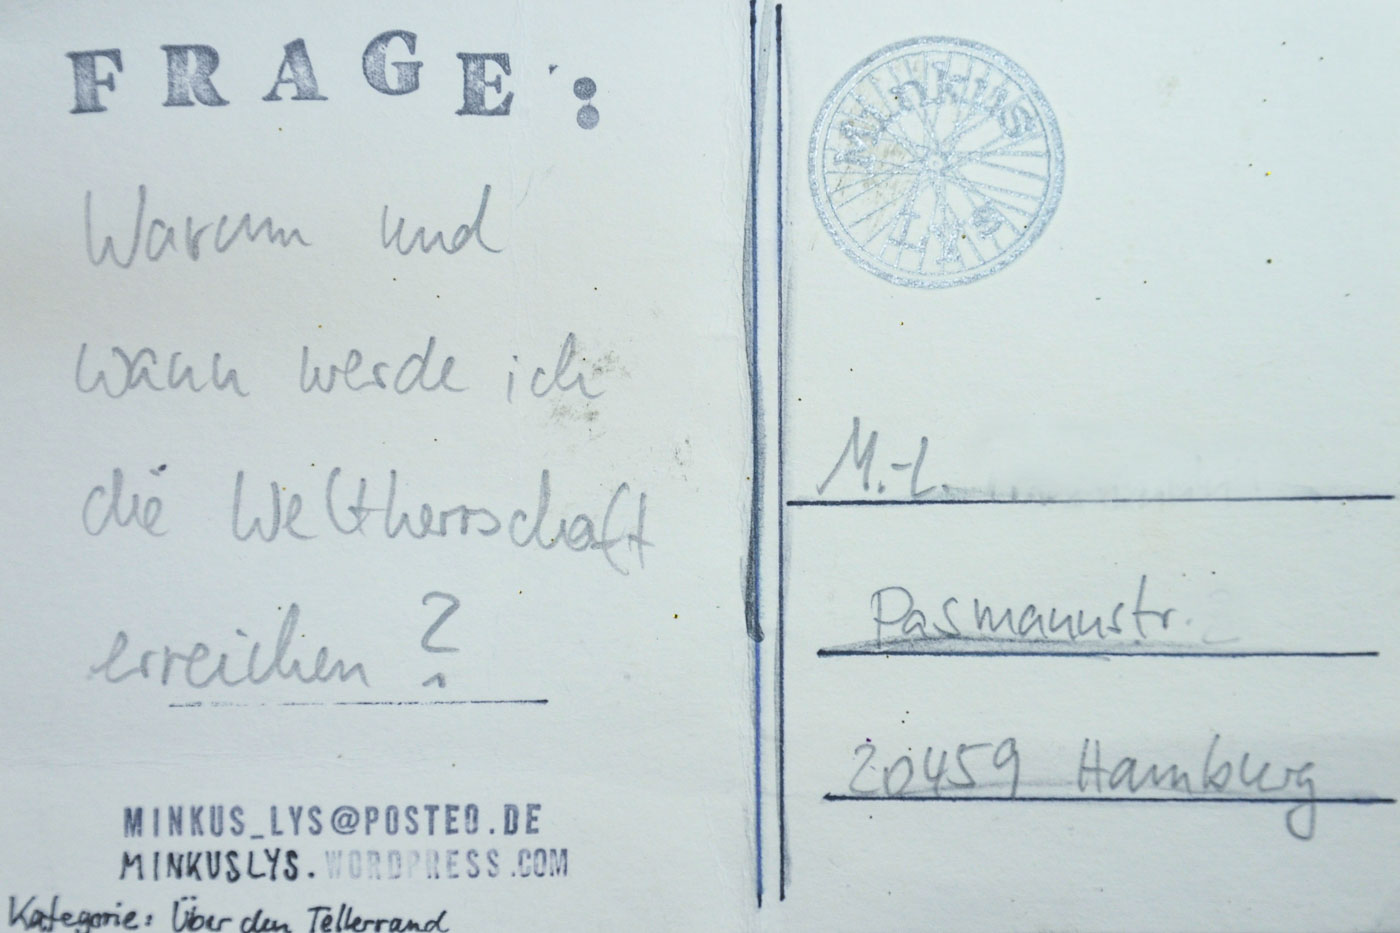 FRAGE:
Warum und
wann werde ich
die Weltherrschaft
erreichen?
MINKUS_LYS@POSTEO.DE
MINKUSLYS.WORDPRESS.COM
Kategorie: Über den Tellerrand
MINKUS
LYS
M.-L.
Pasmannstr.
20459 Hamburg